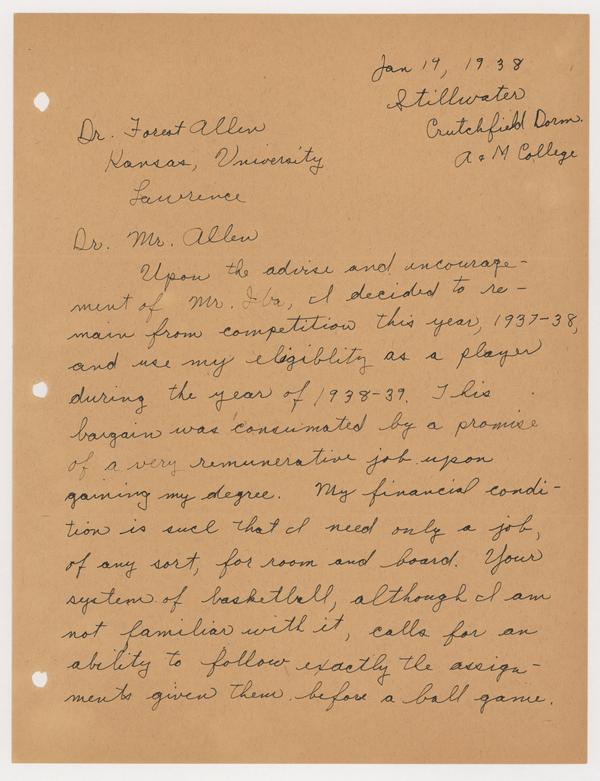 Jan 19, 1938
Stillwater
Crutchfield Dorm.
A & M College
Dr. Forest Allen
Kansas, University
Lawrence
Dr. Mr. Allen
Upon the advise and incourage-
ment of Mr. Iba, I decided to re-
main from competition this year, 1937-38,
and use my eligiblity as a player
during the year of 1938-39. This
bargain was consumated by a promise
of a very remunerative job upon
gaining my degree. My financial condi-
tion is such that I need only a job,
of any sort, for room and board. Your
system of basketball, although I am
not familiar with it, calls for an
ability to follow exactly the assign-
ments given them before a ball game.